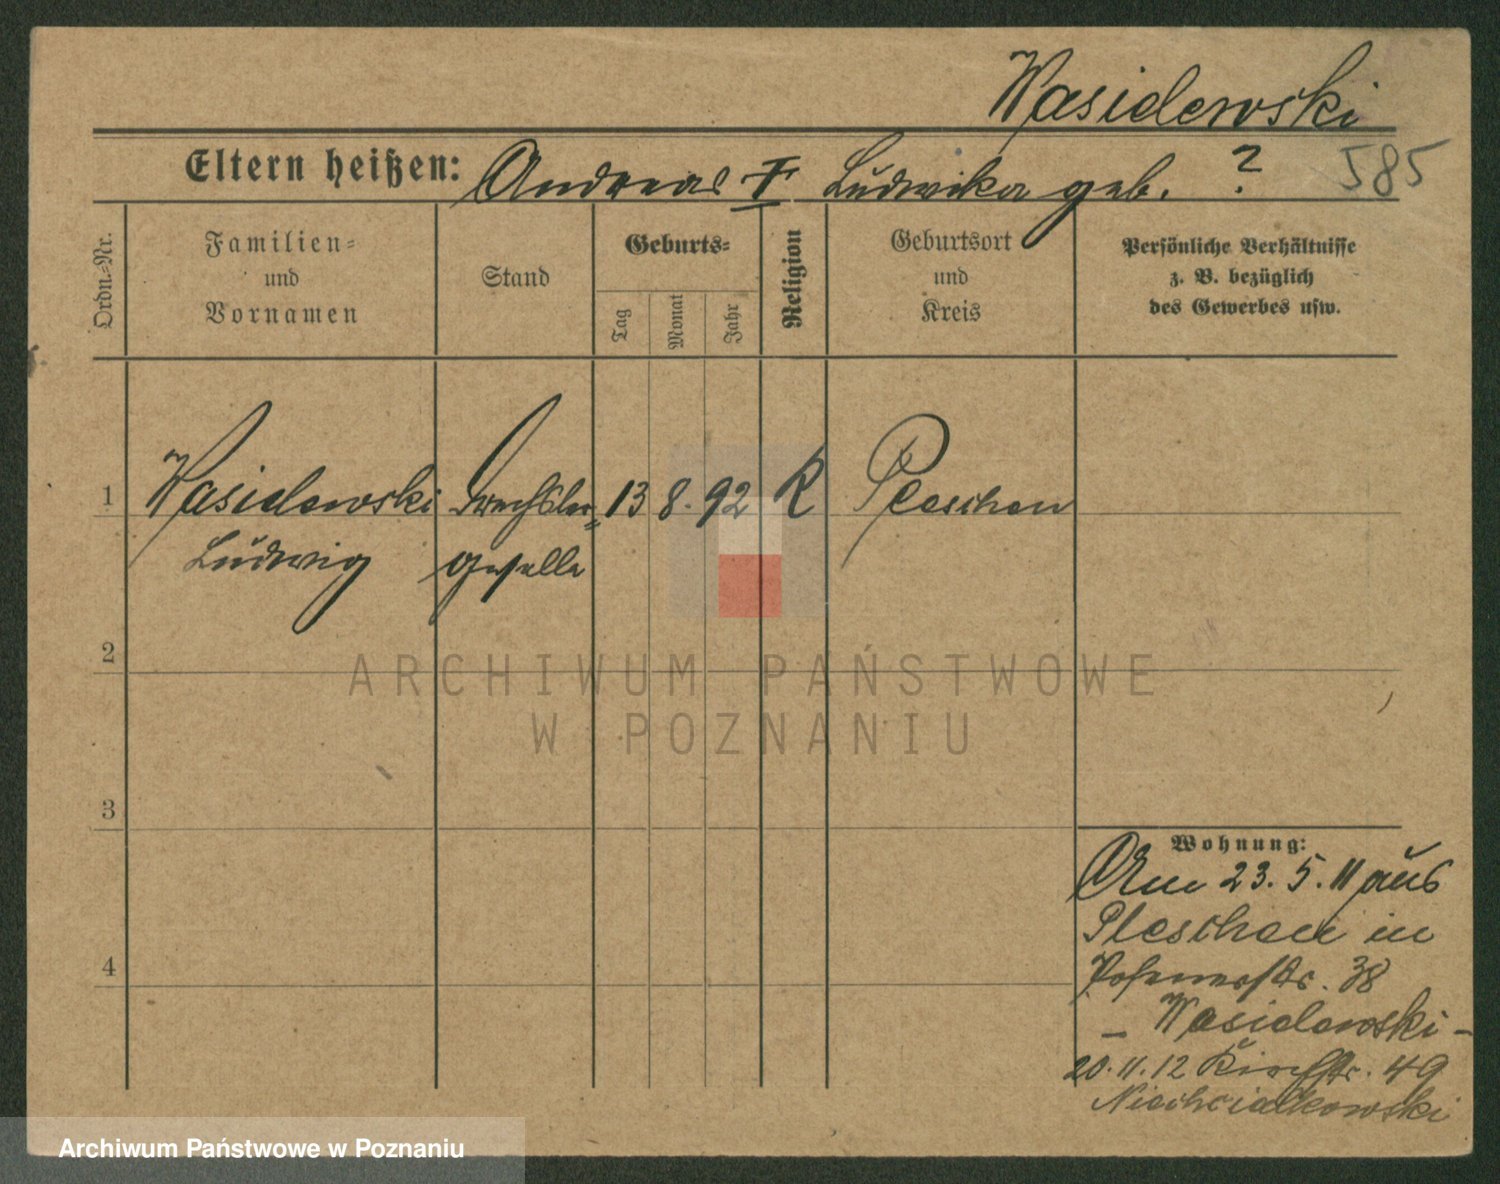 Wasielewski
Eltern heißen: Andreas † Ludwika geb. ? 585
Ordn.=Nr.
Familien=
und
Vornamen
Stand
Geburts=
Tag
Monat
Jahr
Religion
Geburtsort
und
Kreis
Persönliche Verhältnisse
z. B. bezüglich
des Gewerbes usw.
1 Wasielewski Drechsler= 13 8. 92 K Pleschen
Ludwig geselle
2
ARCHIWUM PAŃSTWOWE
W POZNANIU
3
Wohnung:
Am 23. 5. 11 aus
Pleschen in
Posenerstr. 38
4
– Wasielewski –
20. 11. 12 Kirchstr. 49
Niechcialkowski
Archiwum Państwowe w Poznaniu